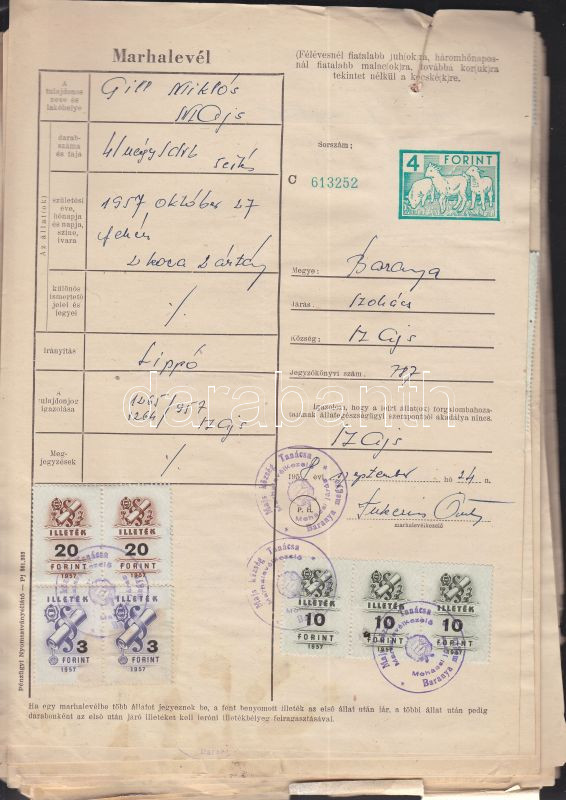 Marhalevél
(Félévesnél fiatalabb juh(ok)ra, háromhónapos-
nál fiatalabb malac(ok)ra, továbbá kor(uk)ra
tekintet nélkül a kecské(k)re.
A
tulajdonos
neve és
lakóhelye
Gill Miklós
Majs
Az állat(ok)
darab-
száma
és faja
4/négy/drb
születési
éve,
hónapja
és napja,
színe,
ivara
1957 október 27
fehér
különös
ismertető
jelei és
jegyei
%
Irányítás
Lippó
A
tulajdonjog
igazolása
1265/
1264/957
Majs
Meg-
jegyzések
%
Sorszám:
C 613252
4 FORINT
Megye: Baranya
Járás: Mohács
Község: Majs
Jegyzőkönyvi szám: 787
Igazolom, hogy a leírt állat(ok) forgalombahoza-
talának állategészségügyi szempontból akadálya nincs.
Majs
195 évi szeptember hó 24.n
P. H.
marhalevélkezelő
Majs község Tanácsa
Marhalevélkezelő
Baranya megye
ILLETÉK ILLETÉK
20 20
FORINT FORINT
1957 1957
ILLETÉK ILLETÉK
3 3
FORINT FORINT
1957 1957
ILLETÉK ILLETÉK ILLETÉK
10 10 10
FORINT FORINT FORINT
1957 1957 1957
Ha egy marhalevélbe több állatot jegyeznek be, a fent benyomott illeték az első állat után jár, a többi állat után pedig
darabonként az első után járó illetéket kell leróni illetékbélyeg felragasztásával.
darabanth.com